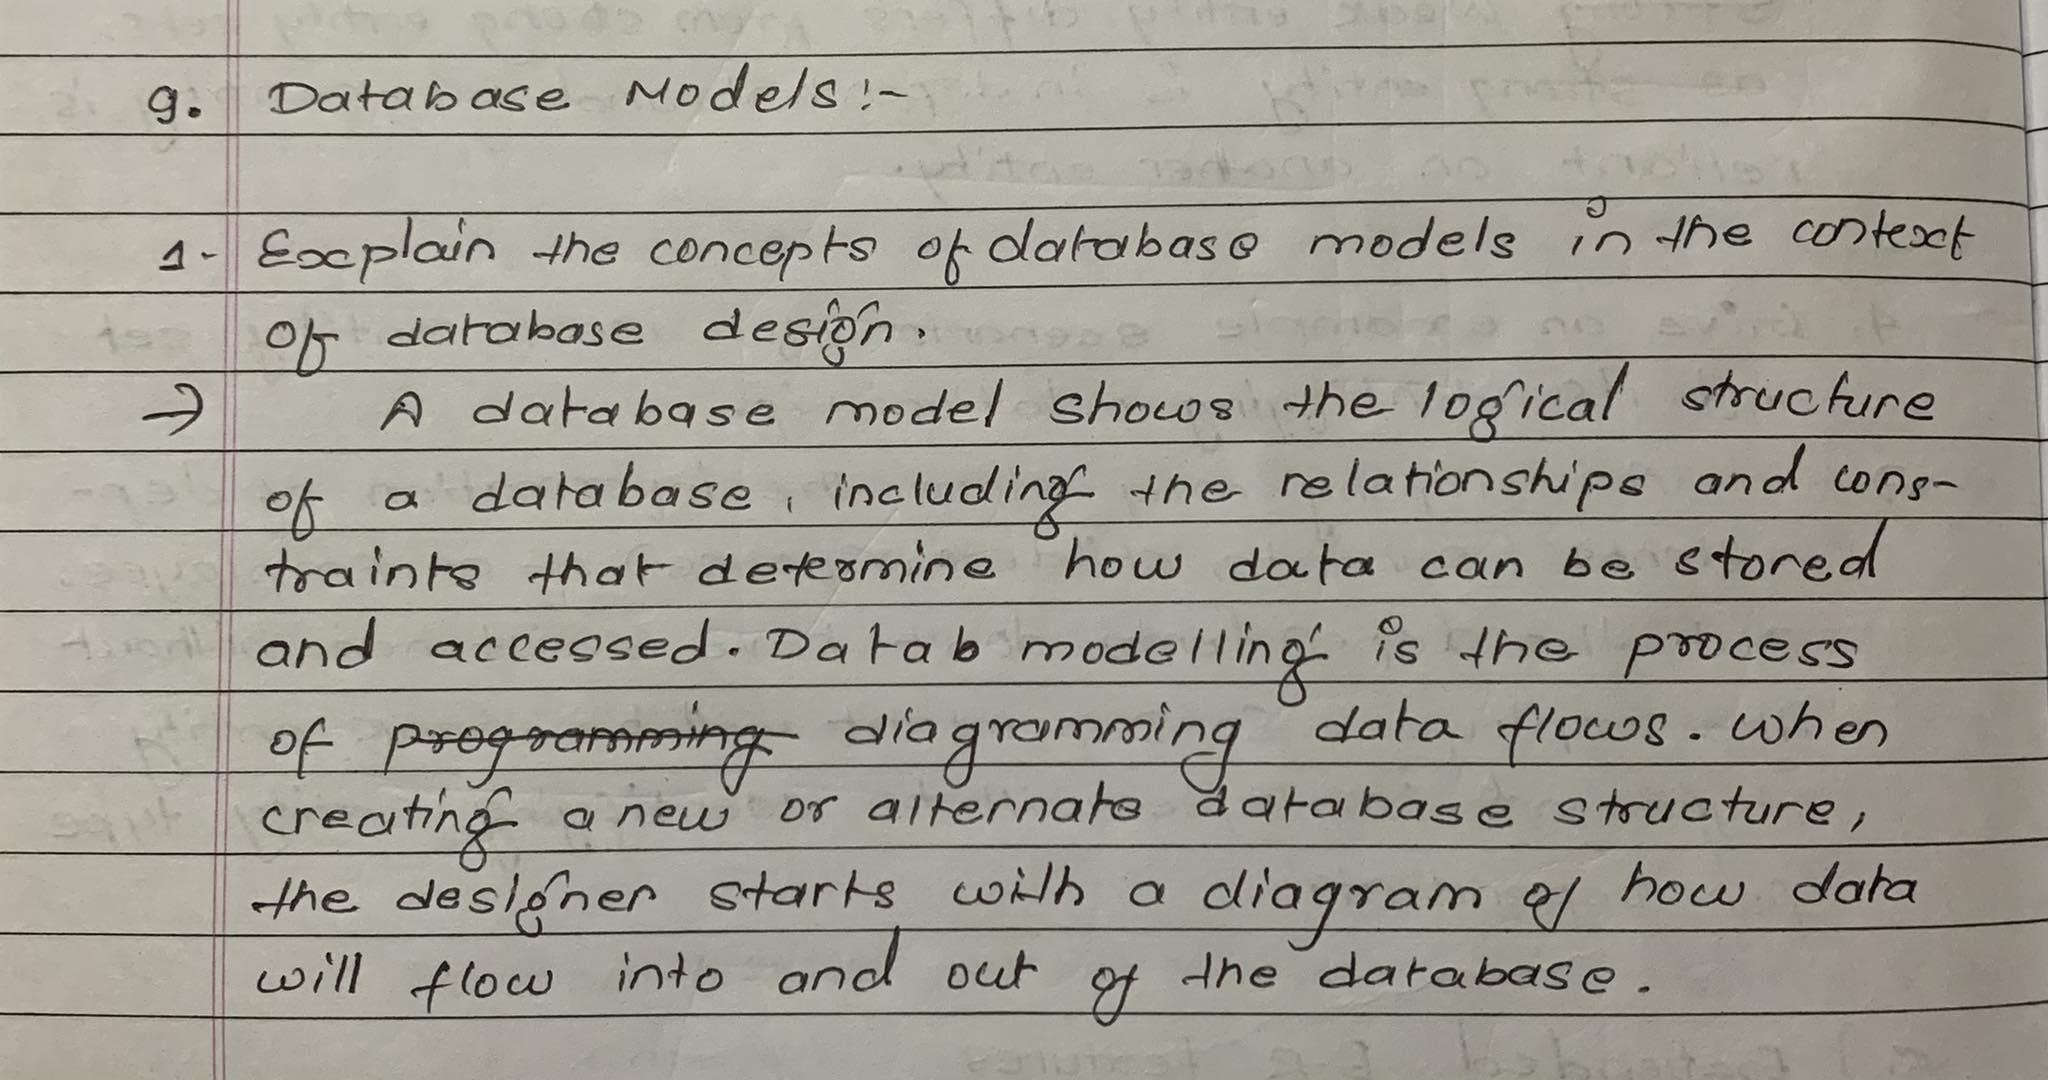 9. Database Models:-
1- Explain the concepts of database models in the context
of database design.
→ A database model shows the logical structure
of a database, including the relationships and cons-
traints that determine how data can be stored
and accessed. Datab modelling is the process
of programming diagramming data flows. When
creating a new or alternate database structure,
the designer starts with a diagram of how data
will flow into and out of the database.